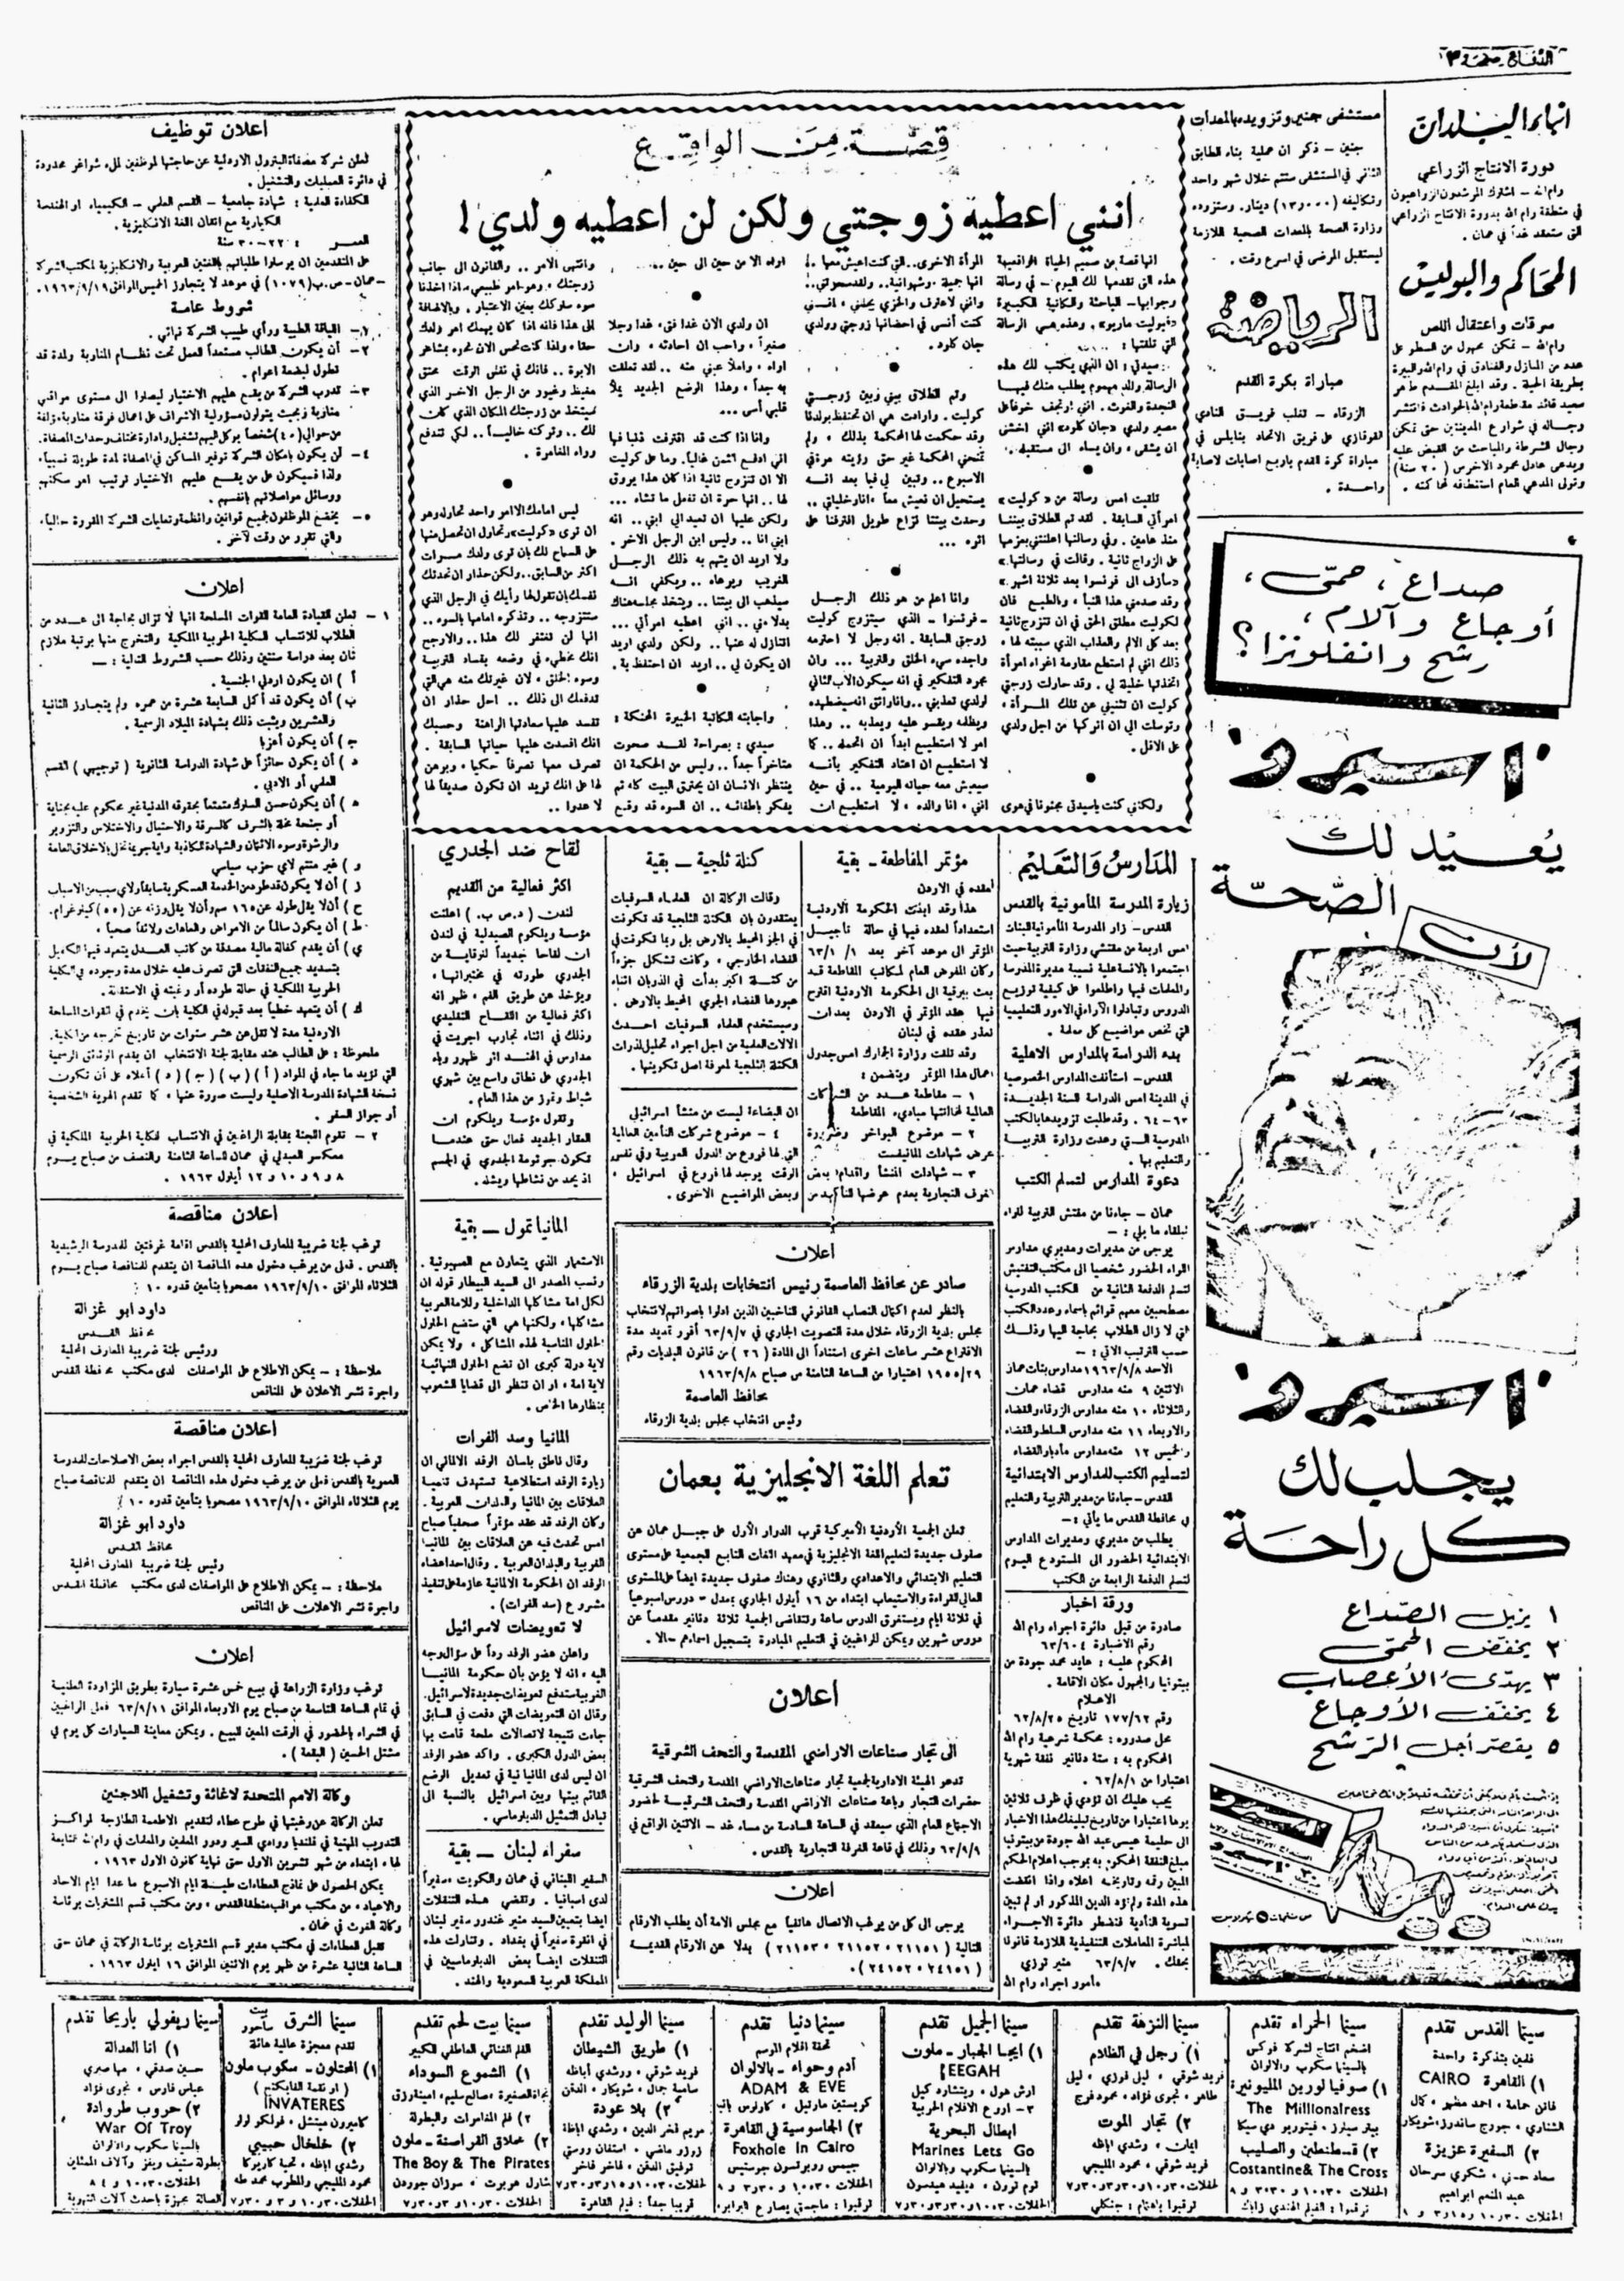 الدفاع - صفحة ٣
انباء البلدان
دورة الانتاج الزراعي
رام الله - اشترك المرشدون الزراعيون
في منطقة رام الله بدورة الانتاج الزراعي
التي ستعقد غداً في عمان .
المحاكم والبوليس
سرقات واعتقال اللص
رام الله - تمكن مجهول من السطو على
عدد من المنازل والفنادق في رام الله والبيرة
بطريقة الحيلة . وقد ابلغ المقدم طاهر
سعيد قائد مقاطعة رام الله بالحوادث فانتشر
رجاله في شوارع المدينتين حتى تمكن
رجال الشرطة والمباحث من القبض عليه
ويدعى عادل محمود الاخرس (٢٠ سنة)
وتولى المدعي العام استنطاقه لمحاكمته .
مستشفى جنين وتزويده بالمعدات
جنين - ذكر ان عملية بناء الطابق
الثاني في المستشفى ستتم خلال شهر واحد
وتكاليفه (١٣,٠٠٠) دينار. وستزوده
وزارة الصحة بالمعدات الصحية اللازمة
ليستقبل المرضى في اسرع وقت .
الرياضة
مباراة بكرة القدم
الزرقاء - تغلب فريق النادي
القوقازي على فريق الاتحاد بنابلس في
مباراة كرة القدم باربع اصابات لاصابة
واحدة .
صداع ، حمّى ،
أوجاع وآلام ،
رشح وانفلونزا ؟
اسبرو
يُعيد لك
الصّحّة
لأن
اسبرو
يجلب لك
كل راحة
١ يزيل الصّداع
٢ يخفّض الحمّى
٣ يهدّئ الأعصاب
٤ يخفّف الأوجاع
٥ يقصّر أجل الترشح
قصّة من الواقع
انني اعطيه زوجتي ولكن لن اعطيه ولدي !
انها قصة من صميم الحياة الواقعية
هذه التي نقدمها لك اليوم - في رسالة
وجوابها - الباحثة والكاتبة الكبيرة
«فيوليت ماريو» . وهذه هي الرسالة
التي تلقتها :
سيدتي : ان الذي يكتب لك هذه
الرسالة والد مهموم يطلب منك فيها
النجدة والغوث . انني ارتجف خوفا على
مصير ولدي «جان كلود» انني اخشى
ان يشقى ، وان يساء الى مستقبله .
تلقيت امس رسالة من «كوليت»
امرأتي السابقة . لقد تم الطلاق بيننا
منذ عامين . وفي رسالتها اعلنتني بعزمها
على الزواج ثانية . وقالت في رسالتها «
سأزف الى فرنسوا بعد ثلاثة اشهر .»
وقد صدمني هذا النبأ ، وبالطبع فان
لكوليت مطلق الحق في ان تتزوج ثانية
بعد كل الالم والعذاب الذي سببته لها ،
ذلك انني لم استطع مقاومة اغواء امرأة
اتخذتها خليلة لي . وقد حاولت زوجتي
كوليت ان تثنيني عن تلك المرأة ،
وتوسلت الي ان اتركها من اجل ولدي
على الاقل .
ولكنني كنت يا سيدتي مجنونا في هوى
المرأة الاخرى.. التي كنت اعيش معها .
انها جميلة ، وشهوانية.. ولقد سحرتني..
واني لاعترف والخزي يجللني ، انني
كنت أنسى في احضانها زوجتي وولدي
جان كلود .
وتم الطلاق بيني وبين زوجتي
كوليت . وارادت هي ان تحتفظ بولدنا
وقد حكمت لها المحكمة بذلك ، ولم
تمنحني المحكمة غير حق رؤيته مرة في
الاسبوع.. وتبين لي فيما بعد انه
يستحيل ان نعيش معا ، انا وخليلتي ..
وحدث بيننا نزاع طويل افترقنا على
اثره ...
وانا اعلم من هو ذلك الرجل
- فرنسوا - الذي سيتزوج كوليت
زوجتي السابقة . انه رجل لا احترمه
واجده سيء الخلق والتربية ... وان
مجرد التفكير في انه سيكون الاب الثاني
لولدي تعذبني .. وانا واثق انه سيضطهده
ويظلمه ويقسو عليه ويعذبه .. وهذا
امر لا استطيع ابداً ان اتحمله .. كما
لا استطيع ان اعتاد التفكير بأنه
سيعيش معه حياته اليومية .. في حين
انني ، انا والده ، لا استطيع ان
اراه الا من حين الى حين ...
ان ولدي الان غدا فتى ، غدا رجلا
صغيراً ، واحب ان احادثه ، وان
اراه ، واملأ عيني منه .. لقد تعلقت
به جداً ، وهذا الوضع الجديد يملأ
قلبي أسى ...
وانا اذا كنت قد اقترفت ذنبا فها
اني ادفع الثمن غالياً. وما على كوليت
الا ان تتزوج ثانية اذا كان هذا يروق
لها .. انها حرة ان تفعل ما تشاء ...
ولكن عليها ان تعيد الي ابني .. انه
ابني انا .. وليس ابن الرجل الاخر .
ولا اريد ان يهتم به ذلك الرجل
الغريب ويرعاه .. ويكفي انه
سيذهب الى بيتنا .. ويتخذ مجلسه هناك
بدلا مني .. انني اعطيه امرأتي ...
اتنازل له عنها .. ولكن ولدي اريد
ان يكون لي .. اريد ان احتفظ به .
واجابته الكاتبة الخبيرة المحنكة :
سيدي : بصراحة لقد صحوت
متأخراً جداً .. وليس من الحكمة ان
ينتظر الانسان ان يحترق البيت كله ثم
يفكر باطفائه .. ان السوء قد وقع
وانتهى الامر .. والقانون الى جانب
زوجتك ، وهو امر طبيعي ، اذا اخذنا
سوء سلوكك بعين الاعتبار . وبالاضافة
الى هذا فانه اذا كان يهمك امر ولدك
حقا ، ولذا كنت تحس الان نحوه بمشاعر
الابوة .. فانك في نفس الوقت محنق
مغيظ وغيور من الرجل الاخر الذي
سيتخذ من زوجتك المكان الذي كان
لك .. وتركته خالياً .. لكي تندفع
وراء المغامرة .
ليس امامك الا امر واحد تحاوله وهو
ان ترى «كوليت» وتحاول ان تحصل منها
على السماح لك بان ترى ولدك مرات
اكثر من السابق .. ولكن حذار ان تحدثك
نفسك بان تقول لها رأيك في الرجل الذي
ستتزوجه .. وتذكره امامها بالسوء ..
انها لن تغتفر لك هذا .. والارجح
انك مخطىء في وصمه بفساد التربية
وسوء الخلق ، لان غيرتك منه هي التي
تدفعك الى ذلك .. اجل حذار ان
تفسد عليها سعادتها الراهنة وحسبك
انك افسدت عليها حياتها السابقة .
تصرف معها تصرفا حكيما ، وبرهن
لها على انك تريد ان تكون صديقا لها
لا عدوا ..
المدارس والتعليم
زيارة المدرسة المأمونية بالقدس
القدس - زار المدرسة المأمونية للبنات
امس اربعة من مفتشي وزارة التربية حيث
اجتمعوا بالانسة علية نسيبة مديرة المدرسة
والمعلمات فيها واطلعوا على كيفية توزيع
الدروس وتبادلوا الآراء في الامور التعليمية
التي تخص مواضيع كل معلمة .
بدء الدراسة بالمدارس الاهلية
القدس - استأنفت المدارس الخصوصية
في المدينة امس الدراسة للسنة الجديدة
٦٣-٦٤ . وقد طلبت تزويدها بالكتب
المدرسية التي وعدت وزارة التربية
والتعليم بها .
دعوة المدارس لتسلم الكتب
عمان - جاءنا من مفتش التربية للواء
البلقاء ما يلي : -
يرجى من مديرات ومديري مدارس
اللواء الحضور شخصيا الى مكتب التفتيش
لتسلم الدفعة الثانية من الكتب المدرسية
مصطحبين معهم قوائم باسماء وعدد الكتب
التي لا زال الطلاب بحاجة اليها وذلك
حسب الترتيب الاتي : -
الاحد ١٩٦٣/٩/٨ مدارس بنات عمان
الاثنين ٩ منه مدارس قضاء عمان
والثلاثاء ١٠ منه مدارس الزرقاء والقضاء
والاربعاء ١١ منه مدارس السلط والقضاء
والخميس ١٢ منه مدارس مأدبا والقضاء
لتسليم الكتب للمدارس الابتدائية
القدس - جاءنا من مدير التربية والتعليم
في محافظة القدس ما يأتي : -
يطلب من مديري ومديرات المدارس
الابتدائية الحضور الى المستودع اليوم
لتسلم الدفعة الرابعة من الكتب
ورقة اخبار
صادرة من قبل دائرة اجراء رام الله
رقم الاضبارة ٦٣/٦٠٤
المحكوم عليه : عايد محمد جودة من
بيتونيا والمجهول مكان الاقامة .
الاعلام
رقم ١٧٧/٦٢ تاريخ ٦٢/٨/٢٥
محل صدوره : محكمة شرعية رام الله
المحكوم به : ستة دنانير نفقة شهرية
اعتبارا من ٦٢/٨/١ .
يجب عليك ان تؤدي في ظرف ثلاثين
يوما اعتبارا من تاريخ تبليغك هذا الاخبار
الى حليمة عيسى عبد الله جودة من بيتونيا
مبلغ النفقة المحكوم به بموجب اعلام الحكم
المبين رقمه وتاريخه اعلاه واذا انقضت
هذه المدة ولم تؤد الدين المذكور او لم تبين
تسوية التأدية فتضطر دائرة الاجراء
لمباشرة المعاملات التنفيذية اللازمة قانونا
بحقك . ٦٣/٩/٧ منير توزي
مأمور اجراء رام الله
مؤتمر المقاطعة - بقية
لعقده في الاردن
هذا وقد ابدت الحكومة الاردنية
استعداداً لعقده فيها في حالة تأجيل
المؤتمر الى موعد آخر بعد ٦٣/١/١
وكان المفوض العام لمكاتب المقاطعة قد
بعث ببرقية الى الحكومة الاردنية اقترح
فيها عقد المؤتمر في الاردن بعد ان
تعذر عقده في لبنان
وقد تلقت وزارة الجمارك امس جدول
اعمال هذا المؤتمر ويتضمن :
١ - مقاطعة عدد من الشركات
العالمية لمخالفتها مبادىء المقاطعة
٢ - موضوع البواخر وضرورة
عرض شهادات المانيفست
٣ - شهادات المنشأ واقدام بعض
الغرف التجارية بعدم عرضها للتأكد من
كتلة ثلجية - بقية
وقالت الوكالة ان العلماء السوفيات
يعتقدون بان الكتلة الثلجية قد تكونت
في الجو المحيط بالارض بل ربما تكونت في
الفضاء الخارجي ، وكانت تشكل جزءاً
من كتلة اكبر بدأت في الذوبان اثناء
عبورها الفضاء الجوي المحيط بالارض .
وسيستخدم العلماء السوفيات احدث
الالات العلمية من اجل اجراء تحليل لذرات
الكتلة الثلجية لمعرفة اصل تكوينها .
ان البضاعة ليست من منشأ اسرائيلي
٤ - موضوع شركات التأمين العالمية
التي لها فروع من الدول العربية وفي نفس
الوقت يوجد لها فروع في اسرائيل .
وبعض المواضيع الاخرى .
اعلان
صادر عن محافظ العاصمة رئيس انتخابات بلدية الزرقاء
بالنظر لعدم اكتمال النصاب القانوني للناخبين الذين ادلوا باصواتهم لانتخاب
مجلس بلدية الزرقاء خلال مدة التصويت الجاري في ٦٣/٩/٧ أقرر تمديد مدة
الاقتراع عشر ساعات اخرى استناداً الى المادة (٢٦) من قانون البلديات رقم
١٩٥٥/٢٩ اعتبارا من الساعة الثامنة من صباح ١٩٦٣/٩/٨
محافظ العاصمة
رئيس انتخاب مجلس بلدية الزرقاء
تعلم اللغة الانجليزية بعمان
تعلن الجمعية الأردنية الأميركية قرب الدوار الأول على جبل عمان عن
صفوف جديدة لتعليم اللغة الانجليزية في معهد اللغات التابع للجمعية على مستوى
التعليم الابتدائي والاعدادي والثانوي وهناك صفوف جديدة ايضاً على المستوى
العالي للقراءة والاستيعاب ابتداء من ١٦ أيلول الجاري بمعدل - دروس اسبوعياً
في ثلاثة ايام ويستغرق الدرس ساعة وتتقاضى الجمعية ثلاثة دنانير مقدماً عن
دروس شهرين ويمكن للراغبين في التعليم المبادرة بتسجيل اسماءهم حالا .
اعلان
الى تجار صناعات الاراضي المقدسة والتحف الشرقية
تدعو الهيئة الادارية لجمعية تجار صناعات الاراضي المقدسة والتحف الشرقية
حضرات التجار وباعة صناعات الاراضي المقدسة والتحف الشرقية لحضور
الاجتماع العام الذي سيعقد في الساعة السادسة من مساء غد - الاثنين الواقع في
٦٣/٩/٩ وذلك في قاعة الغرفة التجارية بالقدس .
اعلان
يرجى الى كل من يرغب الاتصال هاتفيا مع مجلس الامة أن يطلب الارقام
التالية (٢١١٥١ ، ٢١١٥٢ ، ٢١١٥٣) بدلا عن الارقام القديمة
(٢٤١٥١ ، ٢٤١٥٢).
لقاح ضد الجدري
اكثر فعالية من القديم
لندن (د.ص ب.) اعلنت
مؤسسة ويلكوم الصيدلية في لندن
ان لقاحا جديداً للوقاية من
الجدري طورته في مختبراتها ،
ويؤخذ عن طريق الفم ، ظهر انه
اكثر فعالية من اللقاح التقليدي
وذلك في اثناء تجارب اجريت في
مدارس في الهند اثر ظهور وباء
الجدري على نطاق واسع بين شهري
شباط وتموز من هذا العام .
وتقول مؤسسة ويلكوم ان
العقار الجديد فعال حتى عندما
تكون جرثومة الجدري في الجسم
اذ يحد من نشاطها ويشله .
المانيا تمول - بقية
الاستعمار الذي يتعاون مع الصهيونية .
ونسب المصدر الى السيد البيطار قوله ان
لكل امة مشاكلها الداخلية وللامة العربية
مشاكلها ، ولكنها هي التي ستضع الحلول
الحلول المناسبة لهذه المشاكل ، ولا يمكن
لاية دولة كبرى ان تضع الحلول النهائية
لاية امة ، او ان تنظر الى قضايا الشعوب
بمنظارها الخاص .
المانيا وسد الفرات
وقال ناطق بلسان الوفد الالماني ان
زيارة الوفد استطلاعية تستهدف تنمية
العلاقات بين المانيا والبلدان العربية .
وكان الوفد قد عقد مؤتمراً صحفياً صباح
امس تحدث فيه عن العلاقات بين المانيا
الغربية والبلدان العربية . وقال احد اعضاء
الوفد ان الحكومة الالمانية عازمة على تنفيذ
مشروع (سد الفرات) .
لا تعويضات لاسرائيل
واعلن عضو الوفد رداً على سؤال وجه
اليه ، انه لا يؤمن بأن حكومة المانيا
الغربية ستدفع تعويضات جديدة لاسرائيل.
وقال ان التعويضات التي دفعت في السابق
جاءت نتيجة لاتصالات ملحة قامت بها
بعض الدول الكبرى . واكد عضو الوفد
ان ليس لدى المانيا نية في تعديل الوضع
القائم بينها وبين اسرائيل بالنسبة الى
تبادل التمثيل الدبلوماسي .
سفراء لبنان - بقية
السفير اللبناني في عمان والكويت ، سفيراً
لدى اسبانيا . وتقضي هذه التنقلات
ايضا بتعيين السيد منير غندور سفير لبنان
في انقرة سفيراً في بغداد . وتناولت هذه
التنقلات ايضاً بعض الدبلوماسيين في
المملكة العربية السعودية والهند .
اعلان توظيف
تعلن شركة مصفاة البترول الاردنية عن حاجتها لموظفين لملء شواغر محدودة
في دائرة العمليات والتشغيل .
الكفاءة العلمية : شهادة جامعية - القسم العلمي - الكيمياء او الهندسة
الكيماوية مع اتقان اللغة الانكليزية .
العمر : ٢٢-٣٠ سنة
على المتقدمين ان يرسلوا طلباتهم باللغتين العربية والانكليزية لمكتب الشركة
-عمان-ص.ب (١٠٧٩) في موعد لا يتجاوز الخميس الموافق ١٩٦٣/٩/١٩.
شروط عامة
١- اللياقة الطبية ورأي طبيب الشركة نهائي .
٢- أن يكون الطالب مستعداً للعمل تحت نظام المناوبة ولمدة قد
تطول لبضعة اعوام .
٣- تدرب الشركة من يقع عليهم الاختيار ليصلوا الى مستوى مراقبي
مناوبة وبحيث يتولون مسؤولية الاشراف على اعمال فرقة مناوبة مؤلفة
من حوالي (٤٠) شخصاً يوكل اليهم تشغيل وادارة مختلف وحدات المصفاة.
٤- لن يكون بامكان الشركة توفير المساكن في المصفاة لمدة طويلة نسبياً
ولذا فسيكون على من يقع عليهم الاختيار ترتيب امر سكنهم
ووسائل مواصلاتهم بانفسهم .
٥- يخضع الموظفون لجميع قوانين وانظمة وتعليمات الشركة المقررة حالياً،
والتي تقرر من وقت لآخر .
اعلان
١ - تعلن القيادة العامة للقوات المسلحة انها لا تزال بحاجة الى عدد من
الطلاب للانتساب للكلية الحربية الملكية والتخرج منها برتبة ملازم
ثان بعد دراسة سنتين وذلك حسب الشروط التالية : -
أ ) ان يكون اردني الجنسية .
ب) أن يكون قد أكمل السابعة عشرة من عمره ولم يتجاوز الثانية
والعشرين ويثبت ذلك بشهادة الميلاد الرسمية .
ج) أن يكون أعزبا
د ) أن يكون حائزاً على شهادة الدراسة الثانوية (توجيهي) القسم
العلمي أو الادبي .
ه ) أن يكون حسن السلوك متمتعاً بحقوقه المدنية غير محكوم عليه بجناية
أو جنحة مخلة بالشرف كالسرقة والاحتيال والاختلاس والتزوير
والرشوة وسوء الائتمان والشهادة الكاذبة واية جريمة تخل بالاخلاق العامة
و ) غير منتم لاي حزب سياسي
ز ) أن لا يكون قد طرد من الخدمة العسكرية سابقاً ولاي سبب من الاسباب
ح ) أن لا يقل طوله عن ١٦٥ سم وأن لا يقل وزنه عن (٥٥) كيلوغرام.
ط ) أن يكون سالماً من الامراض والعاهات ولائقاً صحياً .
ي) أن يقدم كفالة مالية مصدقة من كاتب العدل يتعهد فيها الكفيل
بتسديد جميع النفقات التي تصرف عليه خلال مدة وجوده في الكلية
الحربية الملكية في حالة طرده أو رغبته في الاستقالة .
ك ) أن يتعهد خطياً بعد قبوله في الكلية بان يخدم في القوات المسلحة
الاردنية مدة لا تقل عن عشر سنوات من تاريخ تخرجه من الكلية.
ملحوظة : على الطالب عند مقابلة لجنة الانتخاب ان يقدم الوثائق الرسمية
التي تؤيد ما جاء في المواد (أ) (ب) (ج) (د) أعلاه على أن تكون
نسخة الشهادة المدرسية الاصلية وليست صورة عنها ، كما تقدم الهوية الشخصية
أو جواز السفر .
٢ - تقوم اللجنة بمقابلة الراغبين في الانتساب للكلية الحربية الملكية في
معسكر العبدلي في عمان الساعة الثامنة والنصف من صباح يوم
٨ و ٩ و ١٠ و ١٢ أيلول ١٩٦٣ .
اعلان مناقصة
ترغب لجنة ضريبة المعارف المحلية بالقدس اقامة غرفتين للمدرسة الرشيدية
بالقدس . فعلى من يرغب دخول هذه المناقصة ان يتقدم للمناقصة صباح يوم
الثلاثاء الموافق ١٩٦٣/٩/١٠ مصحوبا بتأمين قدره ١٠٪
داود ابو غزالة
محافظ القدس
ورئيس لجنة ضريبة المعارف المحلية
ملاحظة : - يمكن الاطلاع على المواصفات لدى مكتب محافظة القدس
واجرة نشر الاعلان على المناقص
اعلان مناقصة
ترغب لجنة ضريبة المعارف المحلية بالقدس اجراء بعض الاصلاحات للمدرسة
العمرية بالقدس فعلى من يرغب دخول هذه المناقصة ان يتقدم للمناقصة صباح
يوم الثلاثاء الموافق ١٩٦٣/٩/١٠ مصحوبا بتأمين قدره ١٠٪
داود ابو غزالة
محافظ القدس
ورئيس لجنة ضريبة المعارف المحلية
ملاحظة : - يمكن الاطلاع على المواصفات لدى مكتب محافظة القدس
واجرة نشر الاعلان على المناقص
اعلان
ترغب وزارة الزراعة في بيع خمس عشرة سيارة بطريق المزاودة العلنية
في تمام الساعة التاسعة من صباح يوم الاربعاء الموافق ٦٣/٩/١١ فعلى الراغبين
في الشراء بالحضور في الوقت المعين للبيع . ويمكن معاينة السيارات كل يوم في
مشتل الحسين (البقعة) .
وكالة الامم المتحدة لاغاثة وتشغيل اللاجئين
تعلن الوكالة عن رغبتها في طرح عطاء لتقديم الاطعمة الطازجة لمراكز
التدريب المهنية في قلنديا ووادي السير ودور المعلمين والمعلمات في رام الله التابعة
لها ، ابتداء من شهر تشرين الاول حتى نهاية كانون الاول ١٩٦٣ .
يمكن الحصول على نماذج العطاءات طيلة ايام الاسبوع ما عدا ايام الاحاد
والاعياد ، من مكتب مراقب منطقة القدس ، ومن مكتب قسم المشتريات برئاسة
وكالة الغوث في عمان .
تقبل العطاءات في مكتب مدير قسم المشتريات برئاسة الوكالة في عمان حتى
الساعة الثانية عشرة من ظهر يوم الاثنين الموافق ١٦ ايلول ١٩٦٣ .
سينما القدس تقدم
فلمين بتذكرة واحدة
١) القاهرة CAIRO
فاتن حمامة ، احمد مظهر ، كمال
الشناوي ، جورج ساندرز ، شويكار
٢) السفيرة عزيزة
سعاد حسني ، شكري سرحان
عبد المنعم ابراهيم
سينما الحمراء تقدم
اضخم انتاج لشركة فوكس
بالسينما سكوب والالوان
١) صوفيا لورين المليونيرة
The Millionairess
بيتر سيلرز ، فيتوريو دي سيكا
٢) قسطنطين والصليب
Costantine & The Cross
ترقبوا : الفيلم الهندي زابك
سينما النزهة تقدم
١) رجل في الظلام
فريد شوقي ، ليل فوزي ، ليل
طاهر ، نجوى فؤاد ، محمود فرج
٢) تجار الموت
ايمان ، رشدي اباظه
فريد شوقي ، محمود المليجي
ترقبوا باهتمام : جنكلي
سينما الجميل تقدم
١) ايجا الجبار - ملون
EEGAH
ارش هول ، ريتشارد كيل
٢- اروع الافلام الحربية
ابطال البحرية
Marines Lets Go
بالسينما سكوب والالوان
توم تريون ، ديفيد هيديسون
سينما دنيا تقدم
تحفة افلام الموسم
آدم وحواء - بالالوان
ADAM & EVE
كريستين مارتيل ، كارلوس باينا
٢) الجاسوسية في القاهرة
Foxhole In Cairo
جيمس روبرتسون جوستيس
سينما الوليد تقدم
١) طريق الشيطان
فريد شوقي ، ورشدي أباظه
سامية جمال ، شويكار ، الدقن
٢) بلا عودة
مريم فخر الدين ، رشدي اباظة
زوزو ماضي ، استفان روستي
توفيق الدقن ، فاخر فاخر
قريبا جداً : فيلم القاهرة
سينما بيت لحم تقدم
الفلم الغنائي العاطفي الكبير
١) الشموع السوداء
نجاة الصغيرة ، صالح سليم ، امينة رزق
٢) فلم المغامرات والبطولة
حلاق القراصنة - ملون
The Boy & The Pirates
شارل هربرت ، سوزان جوردون
سينما الشرق بيت ساحور
تقدم معجزة عالمية هائلة
١) المحتلون - سكوب ملون
INVATERES
كاميرون ميتشل ، فولكو لولي
٢) خلخال حبيبي
رشدي اباظة ، تحية كاريوكا
محمود المليجي والمطرب محمد طه
سينما ريفولي باريحا تقدم
١) أنا العدالة
حسين صدقي ، مها صبري
عباس فارس ، نجوى فؤاد
٢) حروب طروادة
War Of Troy
بالسينما سكوب والالوان
بطولة ستيف ريفز وآلاف الممثلين